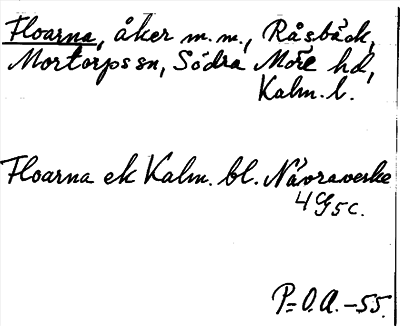 Floarna, åker m.m., Råsbäck,
Mortorps sn, Södra Möre hd,
Kalm. l.
Floarna ek Kalm. bl. Nävraverke
4G5c.
P=O.A.-55.